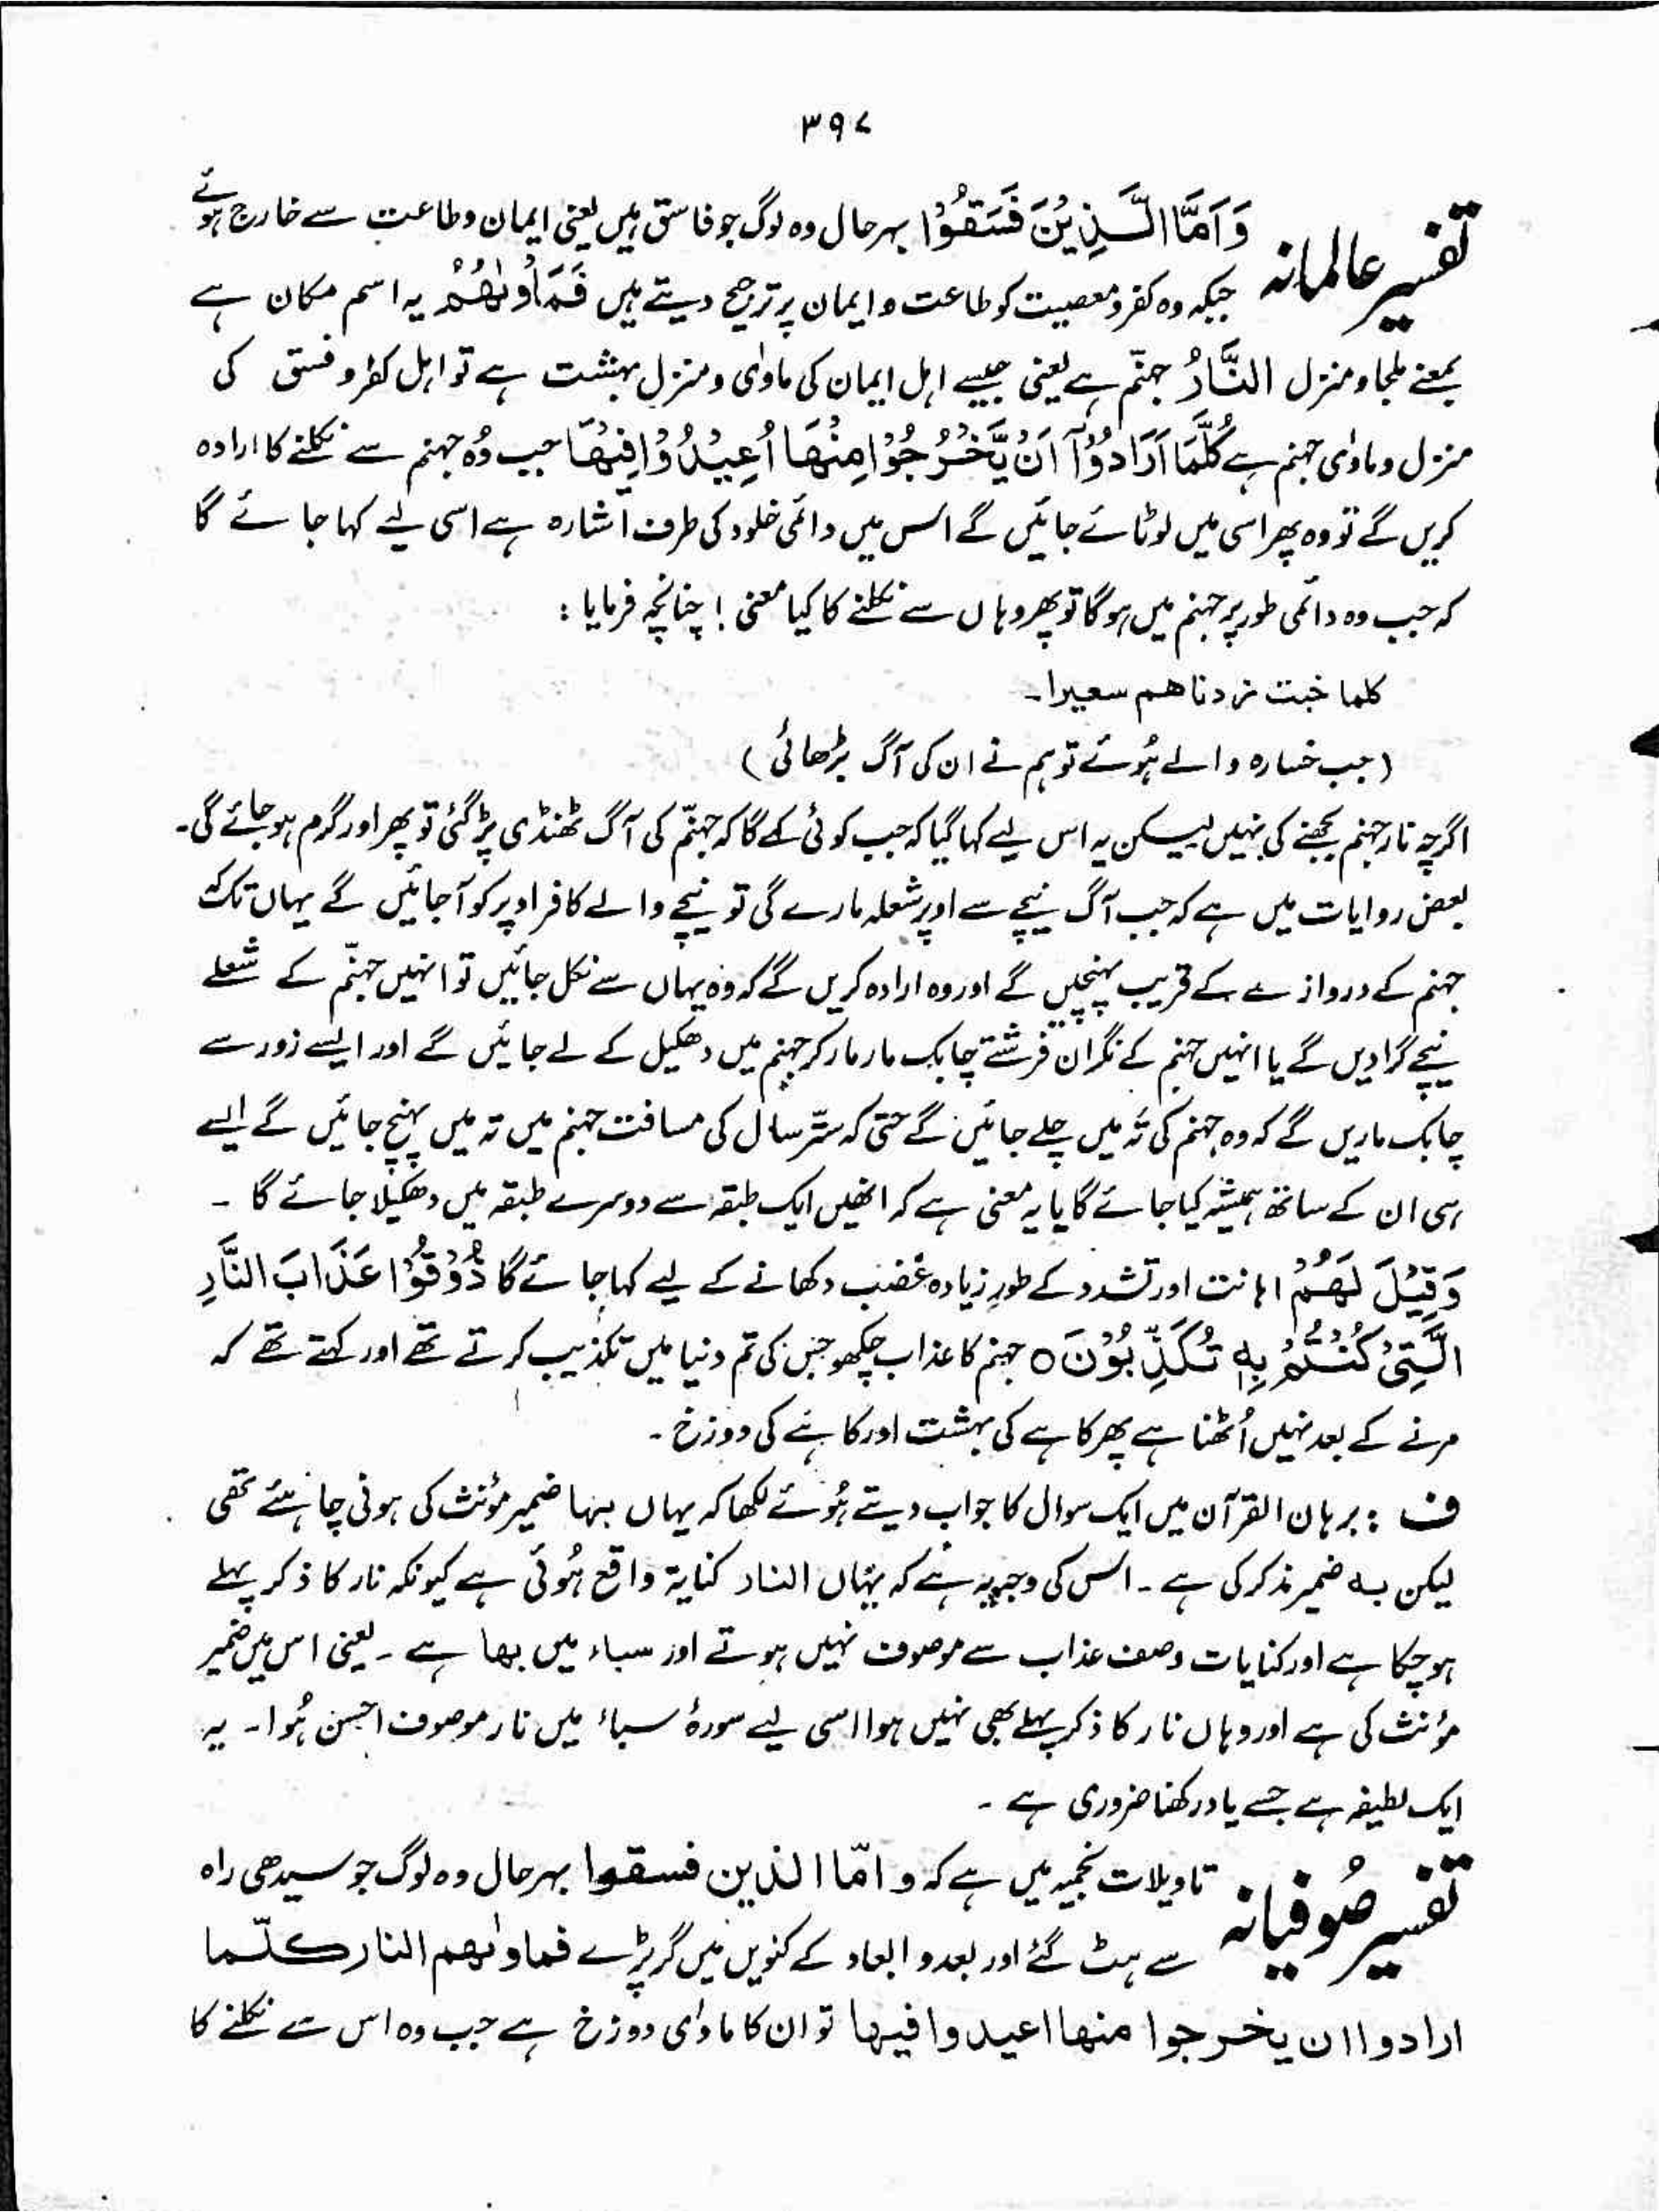 ۳۹۷
تفسیر عالمانہ وَاَمَّا الَّذِیْنَ فَسَقُوْا بہرحال وہ لوگ جو فاسق ہیں یعنی ایمان وطاعت سے خارج ہوئے
جبکہ وہ کفر ومعصیت کو طاعت و ایمان پر ترجیح دیتے ہیں فَمَاْوٰىهُمُ یہ اسم مکان ہے
بمعنے ملجا و منزل النَّارُ جہنّم ہے یعنی جیسے اہل ایمان کی ماوٰی و منزل بہشت ہے تو اہل کفر و فسق کی
منزل و ماوٰی جہنم ہے كُلَّمَا اَرَادُوْۤا اَنْ یَّخْرُجُوْا مِنْهَا اُعِیْدُوْا فِیْهَا جب وُہ جہنم سے نکلنے کا ارادہ
کریں گے تو وہ پھر اسی میں لوٹائے جائیں گے اس میں دائمی خلود کی طرف اشارہ ہے اسی لیے کہا جائے گا
کہ جب وہ دائمی طور پر جہنم میں ہوگا تو پھر وہاں سے نکلنے کا کیا معنی ! چنانچہ فرمایا :
کلما خبت زدناھم سعیرا۔
(جب خسارہ والے ہُوئے تو ہم نے ان کی آگ بڑھائی)
اگرچہ نار جہنم بجھنے کی نہیں لیکن یہ اس لیے کہا گیا کہ جب کوئی کہے گا کہ جہنّم کی آگ ٹھنڈی پڑ گئی تو پھر اور گرم ہوجائے گی۔
بعض روایات میں ہے کہ جب آگ نیچے سے اوپر شعلہ مارے گی تو نیچے والے کافر اوپر کو آجائیں گے یہاں تک کہ
جہنم کے دروازے کے قریب پہنچیں گے اور وہ ارادہ کریں گے کہ وہ یہاں سے نکل جائیں تو انہیں جہنّم کے شعلے
نیچے گرادیں گے یا انہیں جہنم کے نگران فرشتے چابک مار مار کر جہنم میں دھکیل کے لے جائیں گے اور ایسے زور سے
چابک ماریں گے کہ وہ جہنم کی تہ میں چلے جائیں گے حتی کہ ستّر سال کی مسافت جہنم میں تہ میں پہنچ جائیں گے ایسے
ہی ان کے ساتھ ہمیشہ کیا جائے گا یا یہ معنی ہے کہ انھیں ایک طبقہ سے دوسرے طبقہ میں دھکیلا جائے گا ۔
وَقِیْلَ لَهُمْ اہانت اور تشدد کے طور زیادہ غضب دکھانے کے لیے کہا جائے گا ذُوْقُوْا عَذَابَ النَّارِ
الَّتِیْ كُنْتُمْ بِهٖ تُكَذِّبُوْنَ ○ جہنم کا عذاب چکھو جس کی تم دنیا میں تکذیب کرتے تھے اور کہتے تھے کہ
مرنے کے بعد نہیں اُٹھنا ہے پھر کاہے کی بہشت اور کاہے کی دوزخ ۔
ف : برہان القرآن میں ایک سوال کا جواب دیتے ہُوئے لکھا کہ یہاں بہا ضمیر مؤنث کی ہونی چاہئے تھی
لیکن بہ ضمیر مذکر کی ہے ۔ اس کی وجہ یہ ہے کہ یہاں النار کنایۃ واقع ہُوئی ہے کیونکہ نار کا ذکر پہلے
ہوچکا ہے اور کنایات وصف عذاب سے موصوف نہیں ہوتے اور سباء میں بھا ہے ۔ یعنی اس میں ضمیر
مؤنث کی ہے اور وہاں نار کا ذکر پہلے بھی نہیں ہوا اسی لیے سورۂ سباء میں نار موصوف احسن ہُوا۔ یہ
ایک لطیفہ ہے جسے یاد رکھنا ضروری ہے ۔
تفسیر صُوفیانہ تاویلات نجمیہ میں ہے کہ و امّا الذین فسقوا بہرحال وہ لوگ جو سیدھی راہ
سے ہٹ گئے اور بعد و ابعاد کے کنویں میں گر پڑے فماوٰىھم النار کلّما
ارادوا ان یخرجوا منھا اعیدوا فیھا تو ان کا ماوٰی دوزخ ہے جب وہ اس سے نکلنے کا